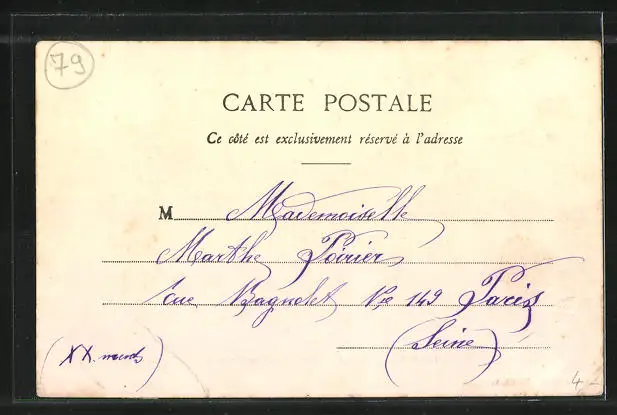 79
CARTE POSTALE
Ce côté est exclusivement réservé à l'adresse
M Mademoiselle
Marthe Poirier
rue Bagnolet No 149 Paris
(Seine)
(XX.
4-